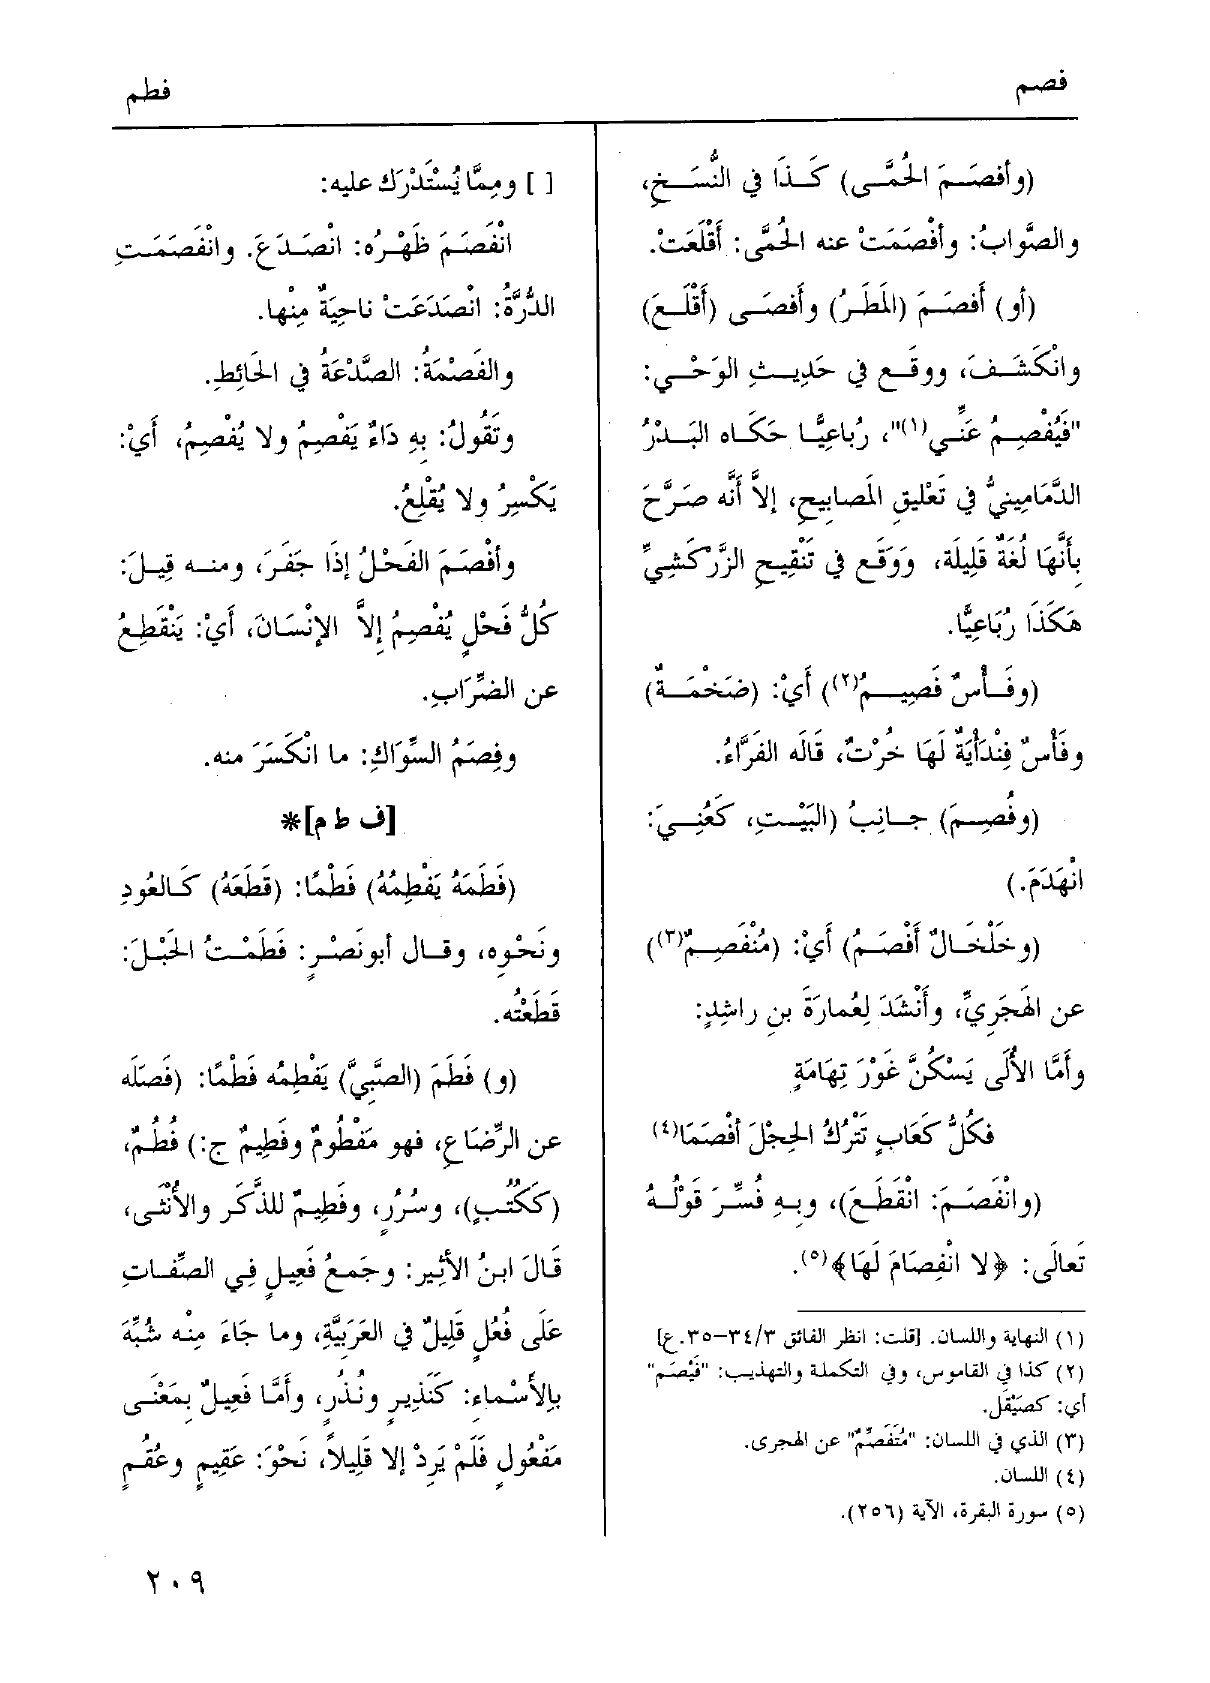 فصم
فطم
(وأَفصَمَ الحُمَّى) كَذَا في النُّسَخِ،
والصَّوابُ: وأَفْصَمَتْ عنه الحُمَّى: أَقْلَعَتْ.
(أو) أَفصَمَ (المَطَرُ) وأَفصَى (أَقْلَعَ)
وانْكَشَفَ، ووقَع في حَدِيثِ الوَحْيِ:
"فَيُفْصِمُ عَنِّي(١)"، رُباعِيًّا حَكَاه البَدْرُ
الدَّمَامِينِيُّ في تَعْلِيقِ المَصابِيحِ، إلاَّ أَنَّه صَرَّحَ
بِأَنَّهَا لُغَةٌ قَلِيلَة، وَوَقَع في تَنْقِيحِ الزَّرْكَشِيِّ
هَكَذَا رُبَاعِيًّا.
(وفَأْسٌ فَصِيمٌ(٢)) أَيْ: (ضَخْمَةٌ)
وفَأْسٌ فِنْدَأْيَةٌ لَهَا خُرْتٌ، قَالَه الفَرَّاءُ.
(وفُصِمَ) جانِبُ (البَيْتِ، كَعُنِيَ:
انْهَدَمَ.)
(وخَلْخَالٌ أَفْصَمُ) أَيْ: (مُنْفَصِمٌ(٣))
عن الهَجَرِيِّ، وأَنْشَدَ لِعُمارَةَ بنِ راشِدٍ:
وأَمَّا الأُلَى يَسْكُنَّ غَوْرَ تِهَامَةٍ
فكُلُّ كَعَابٍ تَتْرُكُ الحِجْلَ أَفْصَمَا(٤)
(وانْفَصَمَ: انْقَطَعَ)، وبِهِ فُسِّرَ قَوْلُهُ
تَعالَى: ﴿لا انْفِصَامَ لَهَا﴾(٥).
(١) النهاية واللسان. [قلت: انظر الفائق ٣/٣٤-٣٥.ع]
(٢) كذا في القاموس، وفي التكملة والتهذيب: "فَيْصَم"
أي: كصَيْقَل.
(٣) الذي في اللسان: "مُتَفَصِّمٌ" عن الهجرى.
(٤) اللسان.
(٥) سورة البقرة، الآية (٢٥٦).
[ ] ومِمَّا يُسْتَدْرَك عليه:
انْفَصَمَ ظَهْرُه: انْصَدَعَ. وانْفَصَمَتِ
الدُّرَّةُ: انْصَدَعَتْ ناحِيَةٌ مِنْها.
والفَصْمَةُ: الصَّدْعَةُ في الحَائِطِ.
وتَقُولُ: بِهِ دَاءٌ يَفْصِمُ ولا يُفْصِمُ، أَيْ:
يَكْسِرُ ولا يُقْلِعُ.
وأَفْصَمَ الفَحْلُ إذَا جَفَرَ، ومنه قِيلَ:
كُلُّ فَحْلٍ يُفْصِمُ إلاَّ الإنْسَانَ، أَيْ: يَنْقَطِعُ
عن الضِّرَابِ.
وفِصَمُ السِّوَاكِ: ما انْكَسَرَ منه.
[ف ط م]*
(فَطَمَهُ يَفْطِمُهُ) فَطْمًا: (قَطَعَهُ) كَالعُودِ
ونَحْوِه، وقال أبونَصْرٍ: فَطَمْتُ الحَبْلَ:
قَطَعْتُه.
(و) فَطَمَ (الصَّبِيَّ) يَفْطِمُه فَطْمًا: (فَصَلَه
عن الرِّضَاعِ، فهو مَفْطُومٌ وفَطِيمٌ ج:) فُطُمٌ،
(كَكُتُبٍ)، وسُرُرٍ، وفَطِيمٌ للذَّكَر والأُنْثَى،
قَالَ ابنُ الأَثِير: وجَمعُ فَعِيلٍ فِي الصِّفَاتِ
عَلَى فُعُلٍ قَلِيلٌ في العَرَبِيَّةِ، وما جَاءَ مِنْه شُبِّهَ
بِالأَسْماءِ: كَنَذِيرٍ ونُذُرٍ، وأَمَّا فَعِيلٌ بِمَعْنَى
مَفْعُولٍ فَلَمْ يَرِدْ إلا قَلِيلاً، نَحْوَ: عَقِيمٍ وعُقُمٍ
٢٠٩